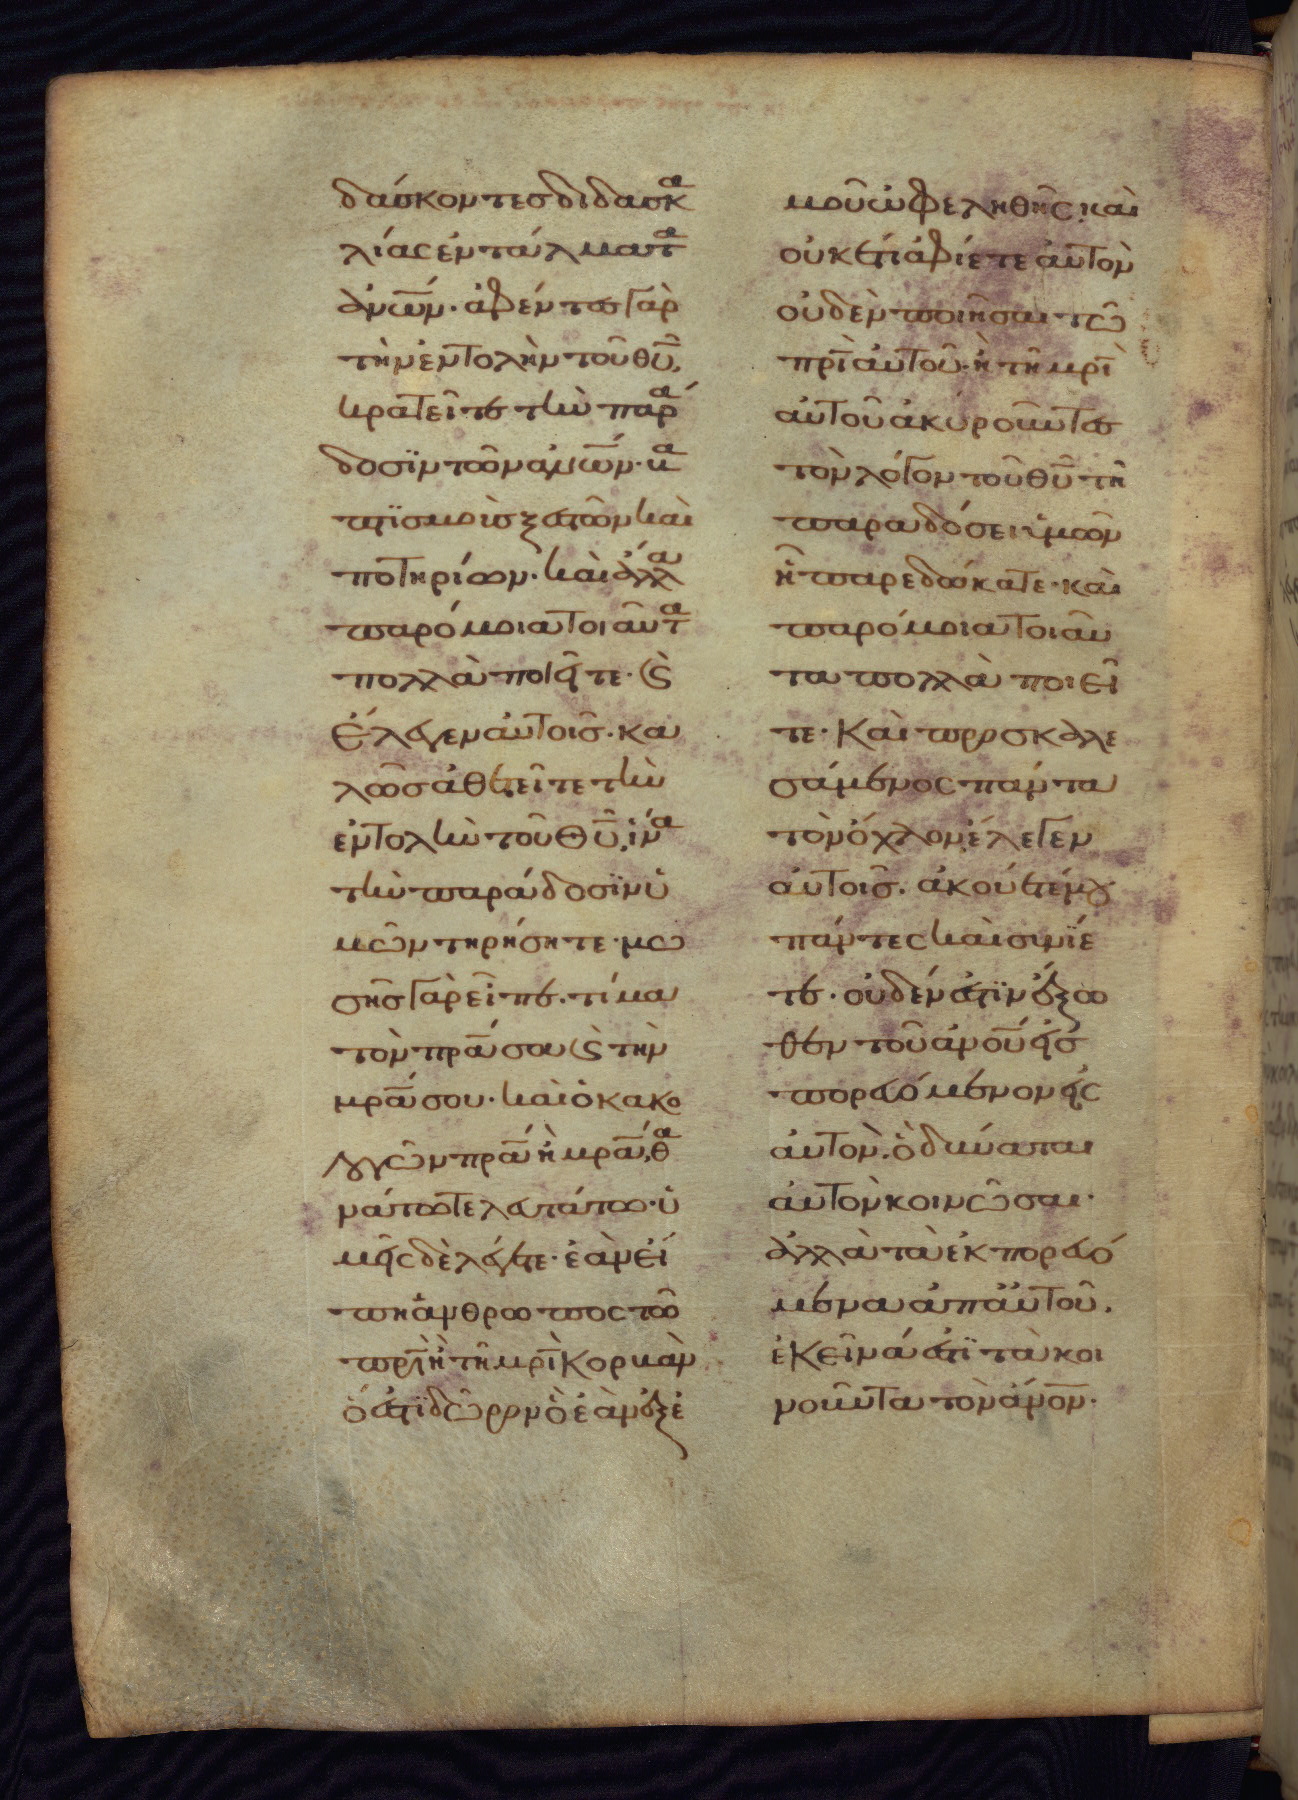 δάσκοντες διδασκα
λίας ἐντάλματα
ἀνων̅· ἀφέντες γὰρ
τὴν ἐντολὴν τοῦ θυ̅,
κρατεῖτε τὴν παρά
δοσϊν τῶν ἀνων̅· βα
πτϊσμοὺς ξεστῶν καὶ
ποτηρίων· καὶ ἄλλα
παρόμοια τοιαῦτα
πολλὰ ποιεῖτε· ϛ̀
ἔλεγεν αὐτοῖς· κα
λῶς ἀθετεῖτε τὴν
ἐντολὴν τοῦ θυ̅, ἵνα
τὴν παράδοσϊν ὑ
μῶν τηρήσητε· μω
σῆς γὰρ εἶπε· τίμα
τὸν πρα̅ σου ϛ̀ τὴν
μρα̅ σου· καὶ ὁ κακο
λογῶν πρα̅ ἢ μρα̅, θα
νάτω τελευτάτω· ὑ
μεῖς δὲ λέγετε· ἐὰν εἴ
πη ἄνθρωπος τῶ
πρι̅ ἢ τῆ μρι̅ κορβὰν
ὅ ἐστϊ δῶρον ὃ ἐὰν ἐξ ἐ
μοῦ ὠφεληθῆς· καὶ
οὐκέτι ἀφίετε αὐτὸν
οὐδὲν ποιῆσαι τῶ
πρι̅ αὐτοῦ· ἢ τῆ μρι̅
αὐτοῦ ἀκυροῦντες
τὸν λόγον τοῦ θυ̅ τῆ
παραδόσει ὑμῶν
ἧ παρεδώκατε· καὶ
παρόμοια τοιαῦ
τα πολλὰ ποιεῖ
τε· Καὶ προσκαλε
σάμενος πάντα
τὸν ὄχλον, ἔλεγεν
αὐτοῖς· ἀκούετέ μου
πάντες καὶ συνϊέ
τε· οὐδέν ἐστϊν ἔξω
θεν τοῦ ἀνου̅ εἰσ
πορευόμενον εἰς
αὐτὸν, ὃ δύναται
αὐτὸν κοινῶσαι·
ἀλλὰ τὰ ἐκπορευό
μενα ἀπ αὐτοῦ.
ἐκεῖνά ἐστϊ τὰ κοι
νοῦντα τὸν ἀνον̅·